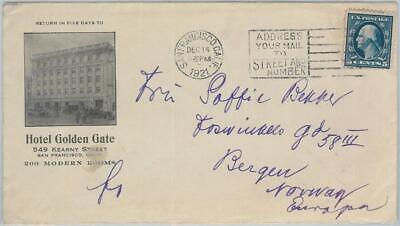 RETURN IN FIVE DAYS TO
Hotel Golden Gate
549 KEARNY STREET
SAN FRANCISCO, CALIF.
200 MODERN ROOMS
SAN FRANCISCO, CALIF.
DEC 14
PM
1921
ADDRESS
YOUR MAIL
TO
STREET AND
NUMBER
U.S. POSTAGE
5 CENTS 5
Soffie Bekker
Foswinkels gd 58 III
Bergen
Norway
Europa